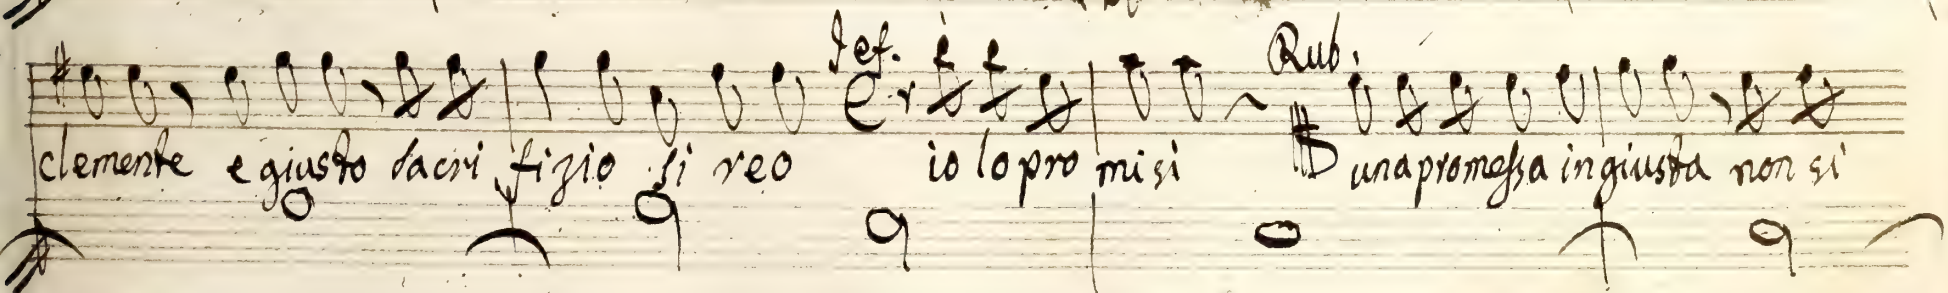 Jef. Rub.
clemente e giusto sacri fizio si reo io lo pro misi una promessa ingiusta non si